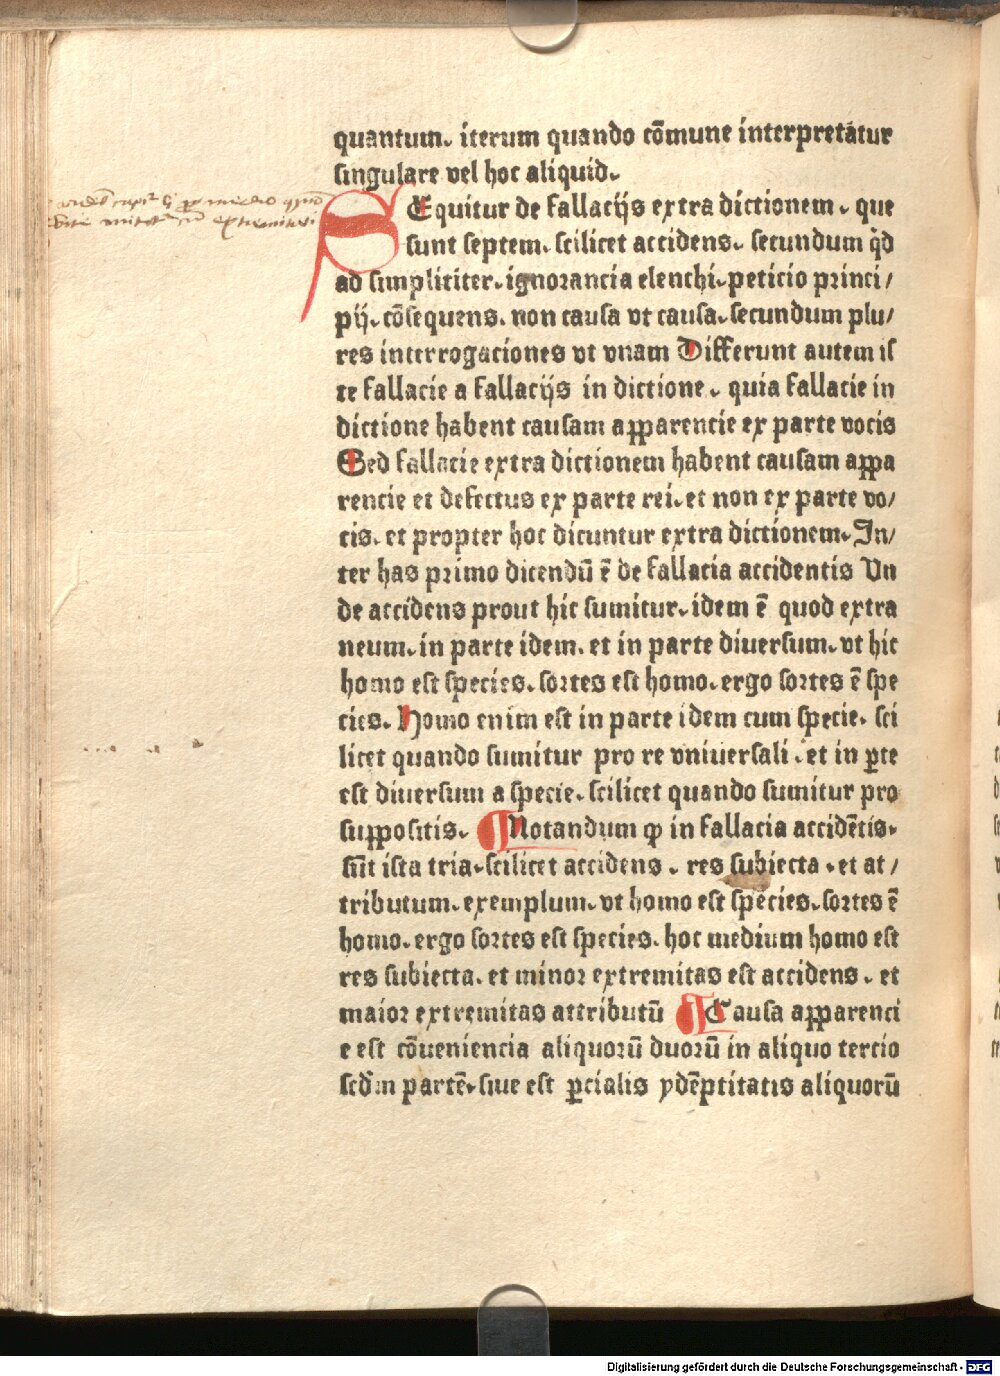 quantum. iterum quando cōmune interpretatur
singulare vel hoc aliquid.
SEquitur de fallacijs extra dictionem. que
sunt septem. scilicet accidens. secundum q̄d
ad simplititer. ignorancia elenchi. peticio princi/
pij. cōsequens. non causa vt causa. secundum plu/
res interrogaciones vt vnam Differunt autem is
te fallacie a fallacijs in dictione. quia fallacie in
dictione habent causam apparencie ex parte vocis
Sed fallacie extra dictionem habent causam appa
rencie et defectus ex parte rei. et non ex parte vo/
cis. et propter hoc dicuntur extra dictionem. In/
ter has primo dicendū ē de fallacia accidentis Vn
de accidens prout hic sumitur. idem ē quod extra
neum. in parte idem. et in parte diuersum. vt hic
homo est species. sortes est homo. ergo sortes ē spe
cies. Homo enim est in parte idem cum specie. sci
licet quando sumitur pro re vniuersali. et in ꝑte
est diuersum a specie. scilicet quando sumitur pro
suppositis. Notandum ꝙ in fallacia accidētis.
sūt ista tria. scilicet accidens. res subiecta. et at/
tributum. exemplum. vt homo est species. sortes ē
homo. ergo sortes est species. hoc medium homo est
res subiecta. et minor extremitas est accidens. et
maior extremitas attributū Causa apparenci
e est cōueniencia aliquorū duorū in aliquo tercio
scd̄m partē. siue est ꝑcialis ydēptitatis aliquorū
Digitalisierung gefördert durch die Deutsche Forschungsgemeinschaft - DFG